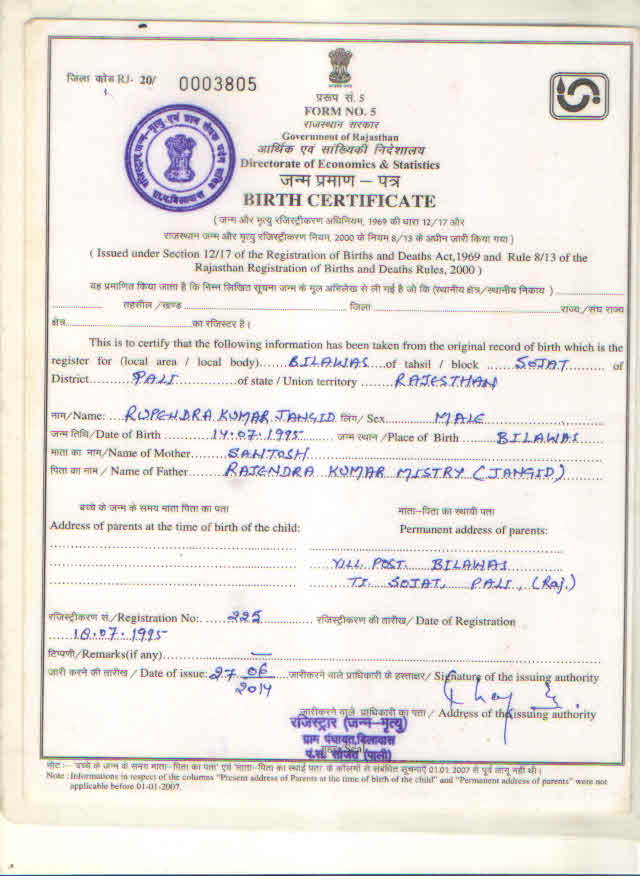 जिला कोड RJ- 20/ 0003805
प्ररूप सं. 5
FORM NO. 5
राजस्थान सरकार
Government of Rajasthan
आर्थिक एवं सांख्यिकी निदेशालय
Directorate of Economics & Statistics
जन्म प्रमाण – पत्र
BIRTH CERTIFICATE
( जन्म और मृत्यु रजिस्ट्रीकरण अधिनियम, 1969 की धारा 12/17 और
राजस्थान जन्म और मृत्यु रजिस्ट्रीकरण नियम, 2000 के नियम 8/13 के अधीन जारी किया गया )
( Issued under Section 12/17 of the Registration of Births and Deaths Act,1969 and Rule 8/13 of the
Rajasthan Registration of Births and Deaths Rules, 2000 )
यह प्रमाणित किया जाता है कि निम्न लिखित सूचना जन्म के मूल अभिलेख से ली गई है जो कि (स्थानीय क्षेत्र/स्थानीय निकाय )
तहसील /खण्ड जिला राज्य/संघ राज्य
क्षेत्र का रजिस्टर है।
This is to certify that the following information has been taken from the original record of birth which is the
register for (local area / local body) BILAWAS of tahsil / block SOJAT of
District PALI of state / Union territory RAJESTHAN
नाम/Name: RUPENDRA KUMAR JANGID लिंग/ Sex MALE
जन्म तिथि/Date of Birth 14.07.1995 जन्म स्थान /Place of Birth BILAWAS
माता का नाम/Name of Mother SANTOSH
पिता का नाम / Name of Father RAJENDRA KUMAR MISTRY (JANGID)
बच्चे के जन्म के समय माता पिता का पता माता–पिता का स्थायी पता
Address of parents at the time of birth of the child: Permanent address of parents:
VILL POST. BILAWAS
TE SOJAT, PALI, (Raj.)
रजिस्ट्रीकरण सं./Registration No: 225 रजिस्ट्रीकरण की तारीख/ Date of Registration
18.07.1995
टिप्पणी/Remarks(if any) —
जारी करने की तारीख / Date of issue: 27 06 2014 जारीकरने वाले प्राधिकारी के हस्ताक्षर/ Signature of the issuing authority
जारीकरने वाले प्राधिकारी का पता / Address of the issuing authority
रजिस्ट्रार (जन्म–मृत्यु)
ग्राम पंचायत,बिलावास
पं.स. सोजत (पाली)
नोट :– 'बच्चे के जन्म के समय माता–पिता का पता' एवं 'माता–पिता का स्थाई पता' के कॉलमों से संबंधित सूचनाएँ 01.01.2007 से पूर्व लागू नहीं थी।
Note : Informations in respect of the columns "Present address of Parents at the time of birth of the child" and "Permanent address of parents" were not
applicable before 01-01-2007.